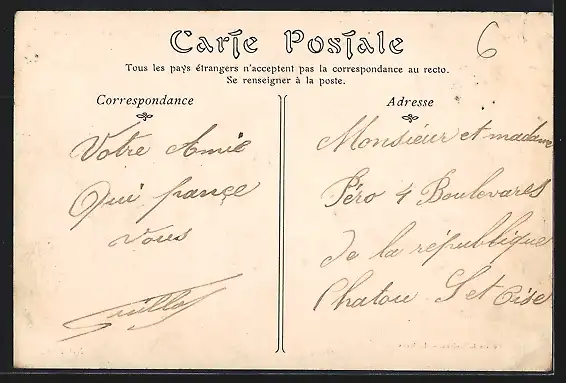 Carte Postale
6
Tous les pays étrangers n'acceptent pas la correspondance au recto.
Se renseigner à la poste.
Correspondance
Votre Amie
Qui pançe
vous
Adresse
Monsieur et madame
Péro 4 Boulevares
de la république
Chatou S et Oise